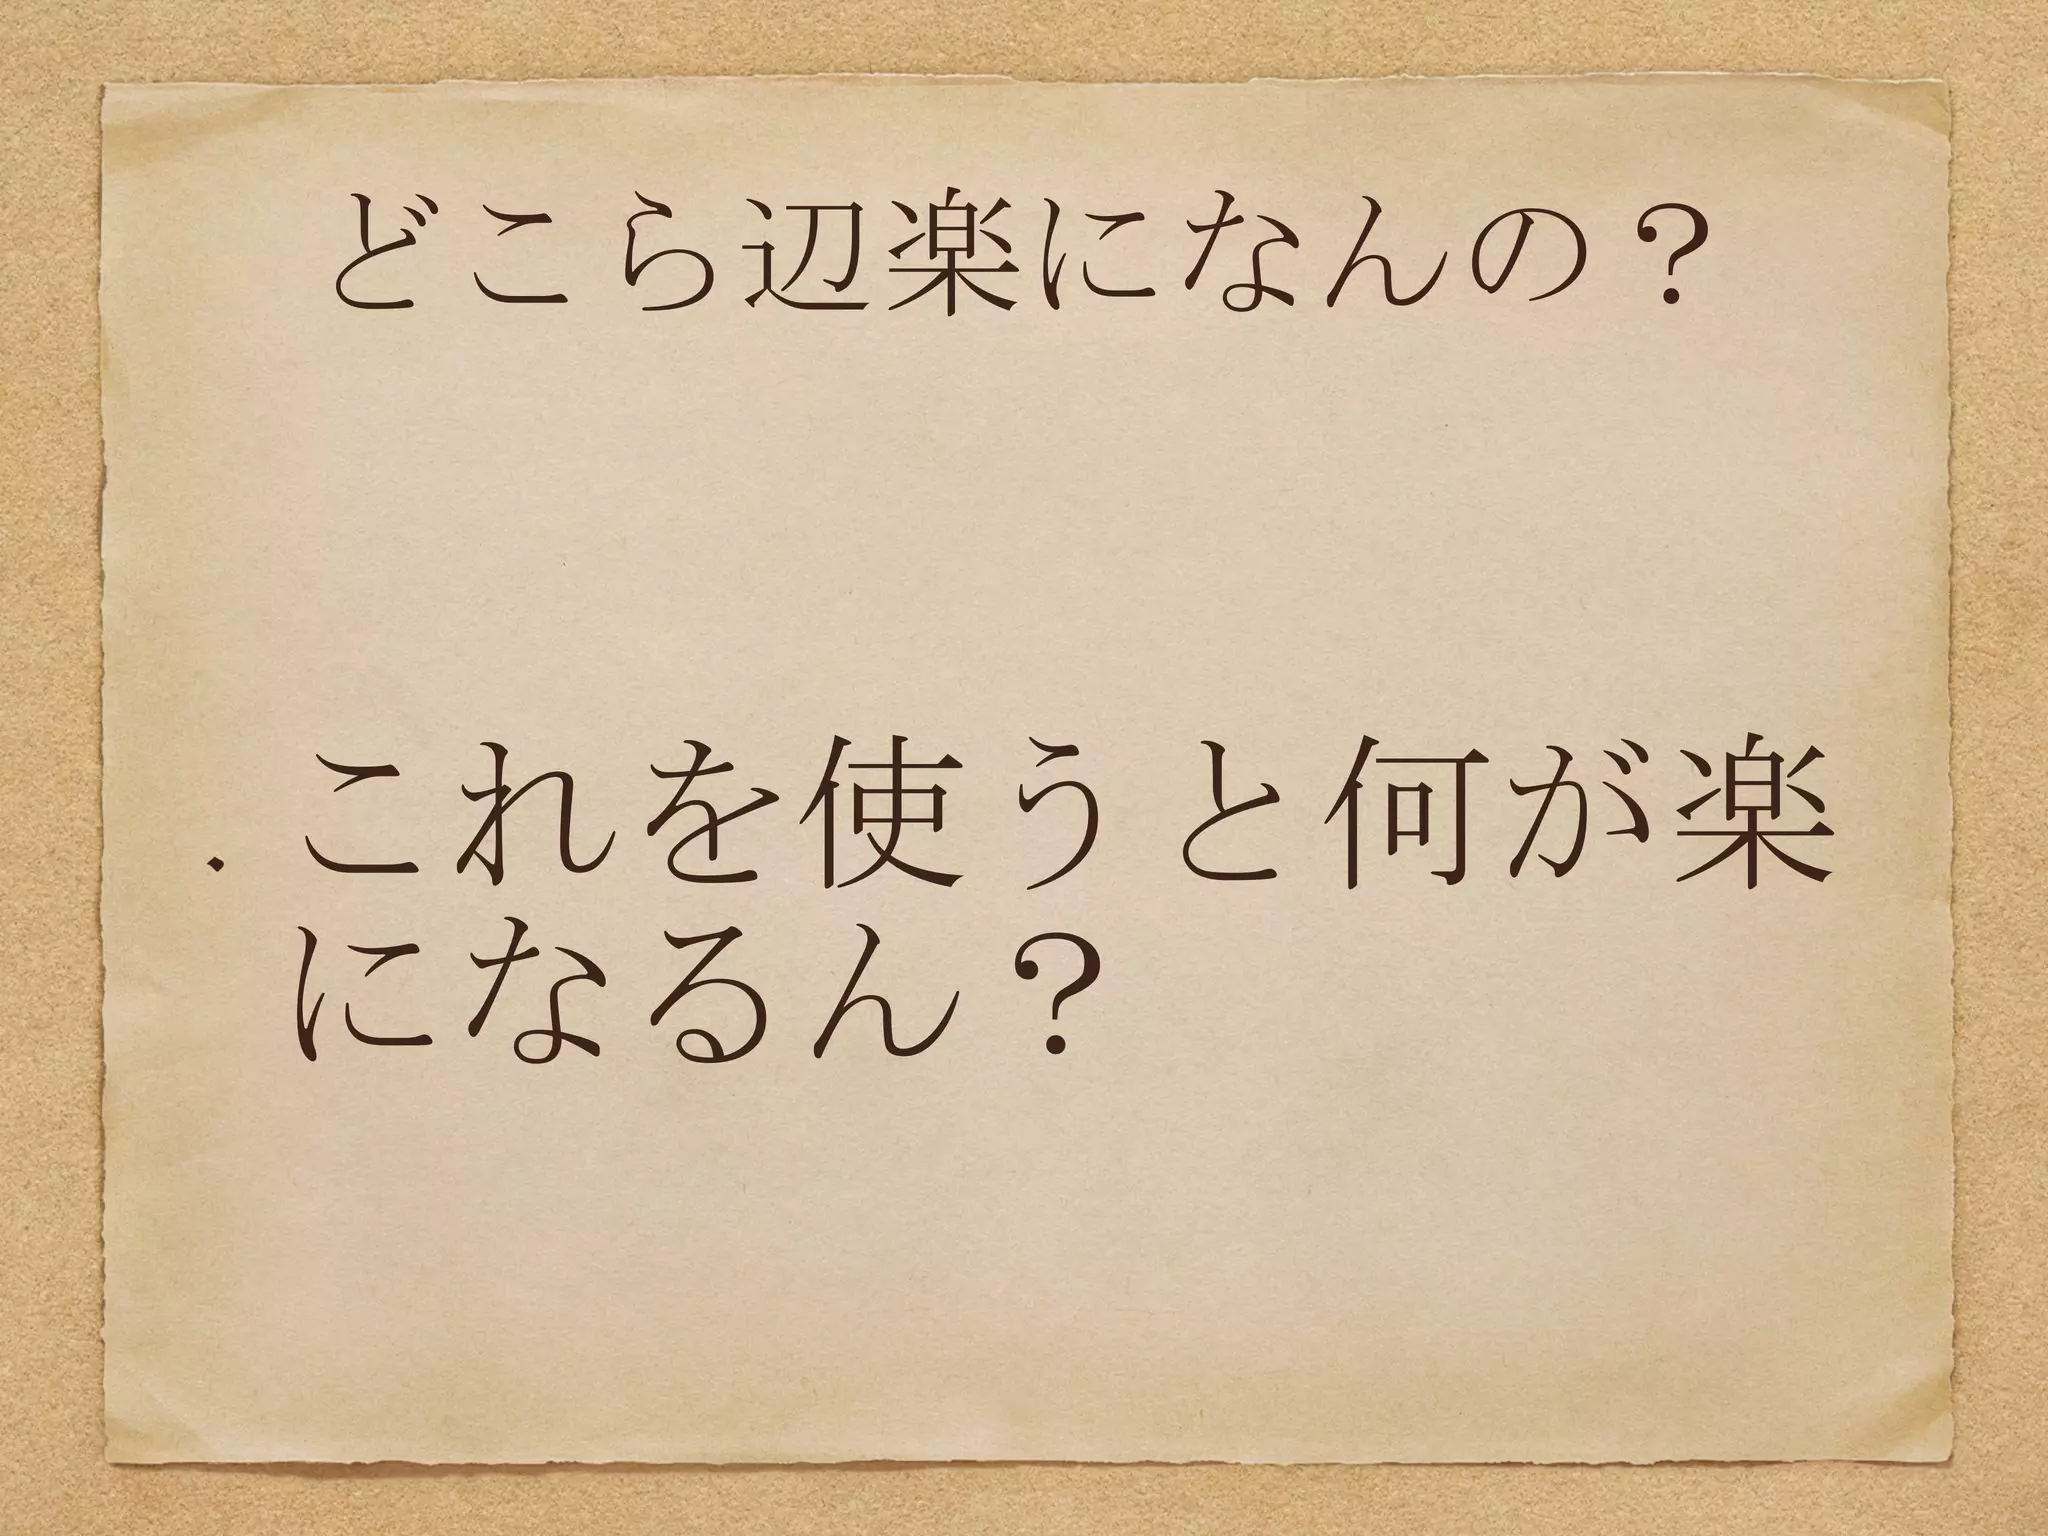 どこら辺楽になんの？
・これを使うと何が楽
になるん？